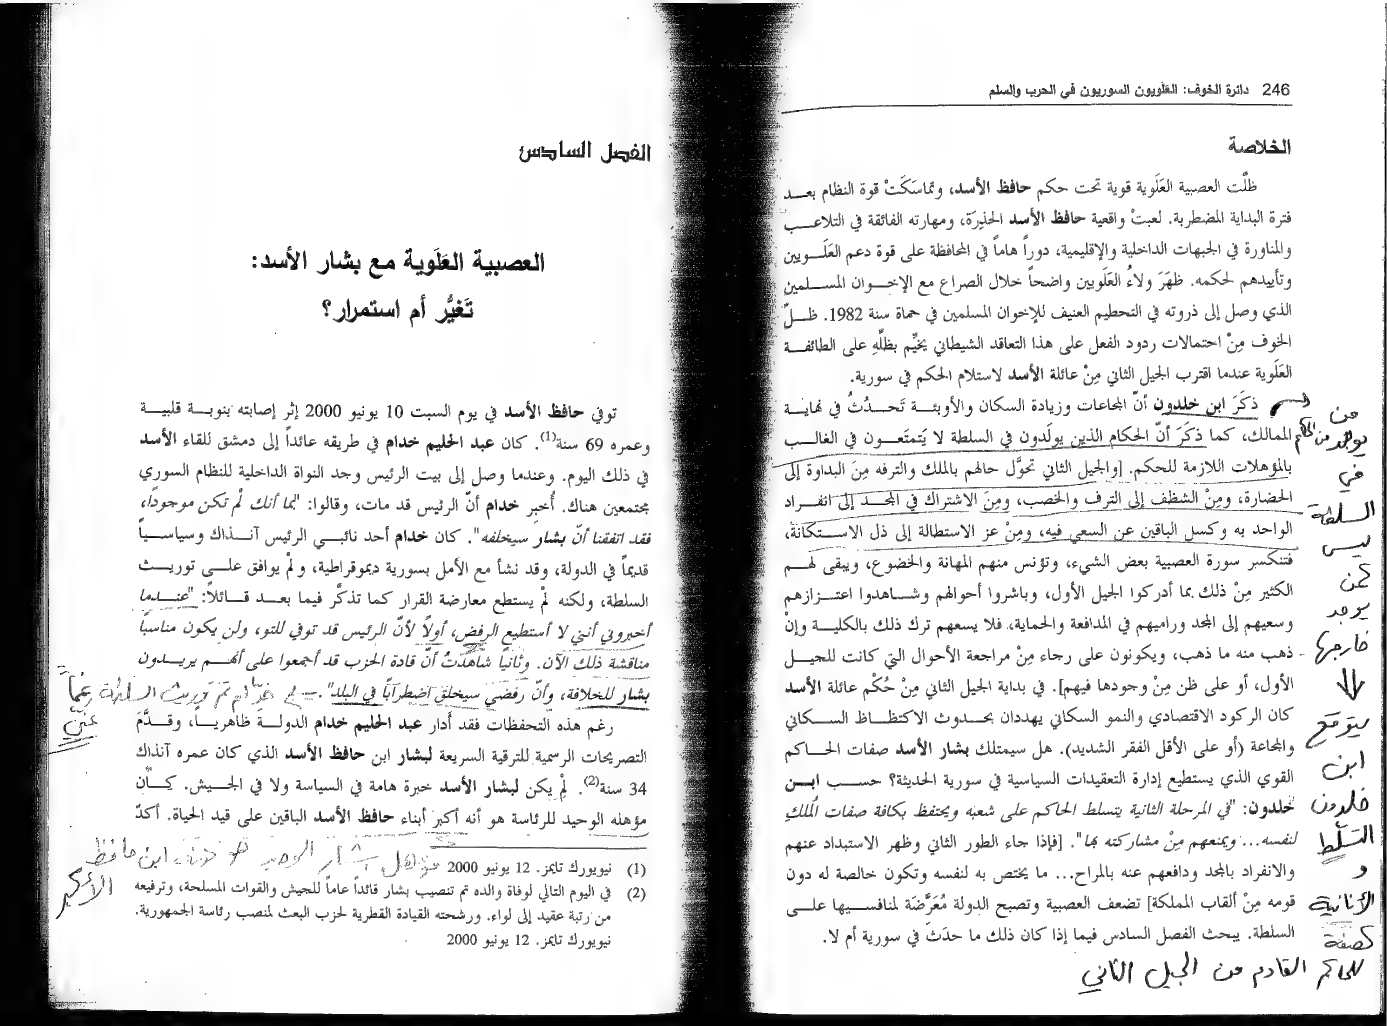 246 دائرة الخوف: العَلَويون السوريون في الحرب والسلم
الخلاصة
ظلَّت العصبية العَلَوية قوية تحت حكم حافظ الأسد، وتماسَكَتْ قوة النظام بعد
فترة البداية المضطربة. لعبتْ واقعية حافظ الأسد الحذِرَة، ومهارته الفائقة في التلاعب
والمناورة في الجبهات الداخلية والإقليمية، دوراً هاماً في المحافظة على قوة دعم العَلَويين
وتأييدهم لحكمه. ظهَرَ ولاءُ العَلَويين واضحاً خلال الصراع مع الإخوان المسلمين
الذي وصل إلى ذروته في التحطيم العنيف للإخوان المسلمين في حماة سنة 1982. ظلّ
الخوف مِنْ احتمالات ردود الفعل على هذا التعاقد الشيطاني يخيِّم بظلِّهِ على الطائفة
العَلَوية عندما اقترب الجيل الثاني مِنْ عائلة الأسد لاستلام الحكم في سورية.
ذكَرَ ابن خلدون أنّ المجاعات وزيادة السكان والأوبئة تَحدُثُ في نهاية
الممالك، كما ذكَرَ أنّ الحكام الذين يولَدون في السلطة لا يَتمتَعون في الغالب
بالمؤهلات اللازمة للحكم. [والجيل الثاني تحوَّل حالهم بالملك والترفه مِنَ البداوة إلى
الحضارة، ومِنْ الشظف إلى الترف والخصب، ومِنَ الاشتراك في المجد إلى انفراد
الواحد به وكسل الباقين عن السعي فيه، ومِنْ عز الاستطالة إلى ذل الاستكانة،
فتنكسر سورة العصبية بعض الشيء، وتؤنس منهم المهانة والخضوع، ويبقى لهم
الكثير مِنْ ذلك بما أدركوا الجيل الأول، وباشروا أحوالهم وشاهدوا اعتزازهم
وسعيهم إلى المجد وراميهم في المدافعة والحماية، فلا يسعهم ترك ذلك بالكلية وإنْ
ذهب منه ما ذهب، ويكونون على رجاء مِنْ مراجعة الأحوال التي كانت للجيل
الأول، أو على ظن مِنْ وجودها فيهم]. في بداية الجيل الثاني مِنْ حُكْم عائلة الأسد
كان الركود الاقتصادي والنمو السكاني يهددان بحدوث الاكتظاظ السكاني
والمجاعة (أو على الأقل الفقر الشديد). هل سيمتلك بشار الأسد صفات الحاكم
القوي الذي يستطيع إدارة التعقيدات السياسية في سورية الحديثة؟ حسب ابن
خلدون: "في المرحلة الثانية يتسلط الحاكم على شعبه ويحتفظ بكافة صفات المُلكِ
لنفسه... ويمنعهم مِنْ مشاركته بها". [فإذا جاء الطور الثاني وظهر الاستبداد عنهم
والانفراد بالمجد ودافعهم عنه بالمراح... ما يختص به لنفسه وتكون خالصة له دون
قومه مِنْ ألقاب المملكة] تضعف العصبية وتصبح الدولة مُعَرَّضَة لمنافسيها على
السلطة. يبحث الفصل السادس فيما إذا كان ذلك ما حدَثَ في سورية أم لا.
من
يوجد
في
السلطة
ليس
كمن
يوجد
خارجها
يتوقع
ابن
خلدون
التسلّط
و
الأنانية
كصفة
للحاكم القادم من الجيل الثاني
الفصل السادس
العصبية العَلَوية مع بشار الأسد:
تَغيُّر أم استمرار؟
توفي حافظ الأسد في يوم السبت 10 يونيو 2000 إثر إصابته بنوبة قلبية
وعمره 69 سنة(1). كان عبد الحليم خدام في طريقه عائداً إلى دمشق للقاء الأسد
في ذلك اليوم. وعندما وصل إلى بيت الرئيس وجد النواة الداخلية للنظام السوري
مجتمعين هناك. أُخبِر خدام أنّ الرئيس قد مات، وقالوا: "بما أنك لم تكن موجوداً،
فقد اتفقنا أنّ بشار سيخلفه". كان خدام أحد نائبي الرئيس آنذاك وسياسياً
قديماً في الدولة، وقد نشأ مع الأمل بسورية ديموقراطية، ولم يوافق على توريث
السلطة، ولكنه لم يستطع معارضة القرار كما تذكَّر فيما بعد قائلاً: "عندما
أخبروني أنني لا أستطيع الرفض، أولاً لأنّ الرئيس قد توفي للتو، ولن يكون مناسباً
مناقشة ذلك الآن. وثانياً شاهَدْتُ أنّ قادة الحزب قد أجمعوا على أنهم يريدون
بشار للخلافة، وأنّ رفضي سيخلق اضطراباً في البلد".
خدام تم توريث السلطة رغماً
عني
رغم هذه التحفظات فقد أدار عبد الحليم خدام الدولة ظاهرياً، وقدَّمَ
التصريحات الرسمية للترقية السريعة لبشار ابن حافظ الأسد الذي كان عمره آنذاك
34 سنة(2). لم يكن لبشار الأسد خبرة هامة في السياسة ولا في الجيش. كان
مؤهله الوحيد للرئاسة هو أنه أكبر أبناء حافظ الأسد الباقين على قيد الحياة. أكدّ
مؤهل بشار الوحيد هو كونه ابن حافظ
الأكبر
(1) نيويورك تايمز. 12 يونيو 2000
(2) في اليوم التالي لوفاة والده تم تنصيب بشار قائداً عاماً للجيش والقوات المسلحة، وترفيعه
من رتبة عقيد إلى لواء. ورشحته القيادة القطرية لحزب البعث لمنصب رئاسة الجمهورية.
نيويورك تايمز. 12 يونيو 2000